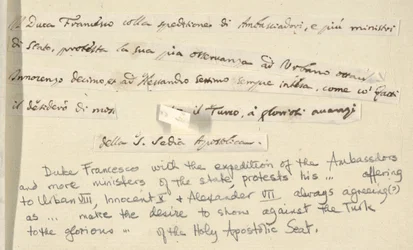 Il Duca Francesco colla speditione di Ambasciadori, e più ministri
di Stato, protesta la sua pia osservanza ad Urbano ottavo
Innocenzo decimo, e ad Alessandro settimo sempre intesa, come co' fatti
il desiderò di mos il Turco, à gloriosi avanzi
della S. Sedia Apostolica.
Duke Francesco with the expedition of the Ambassadors
and more ministers of the state, protests his ... offering
to Urban VIII, Innocent X & Alexander VII always agreeing(?)
as ... make the desire to show against the Turk
to the glorious ... of the Holy Apostolic Seat.